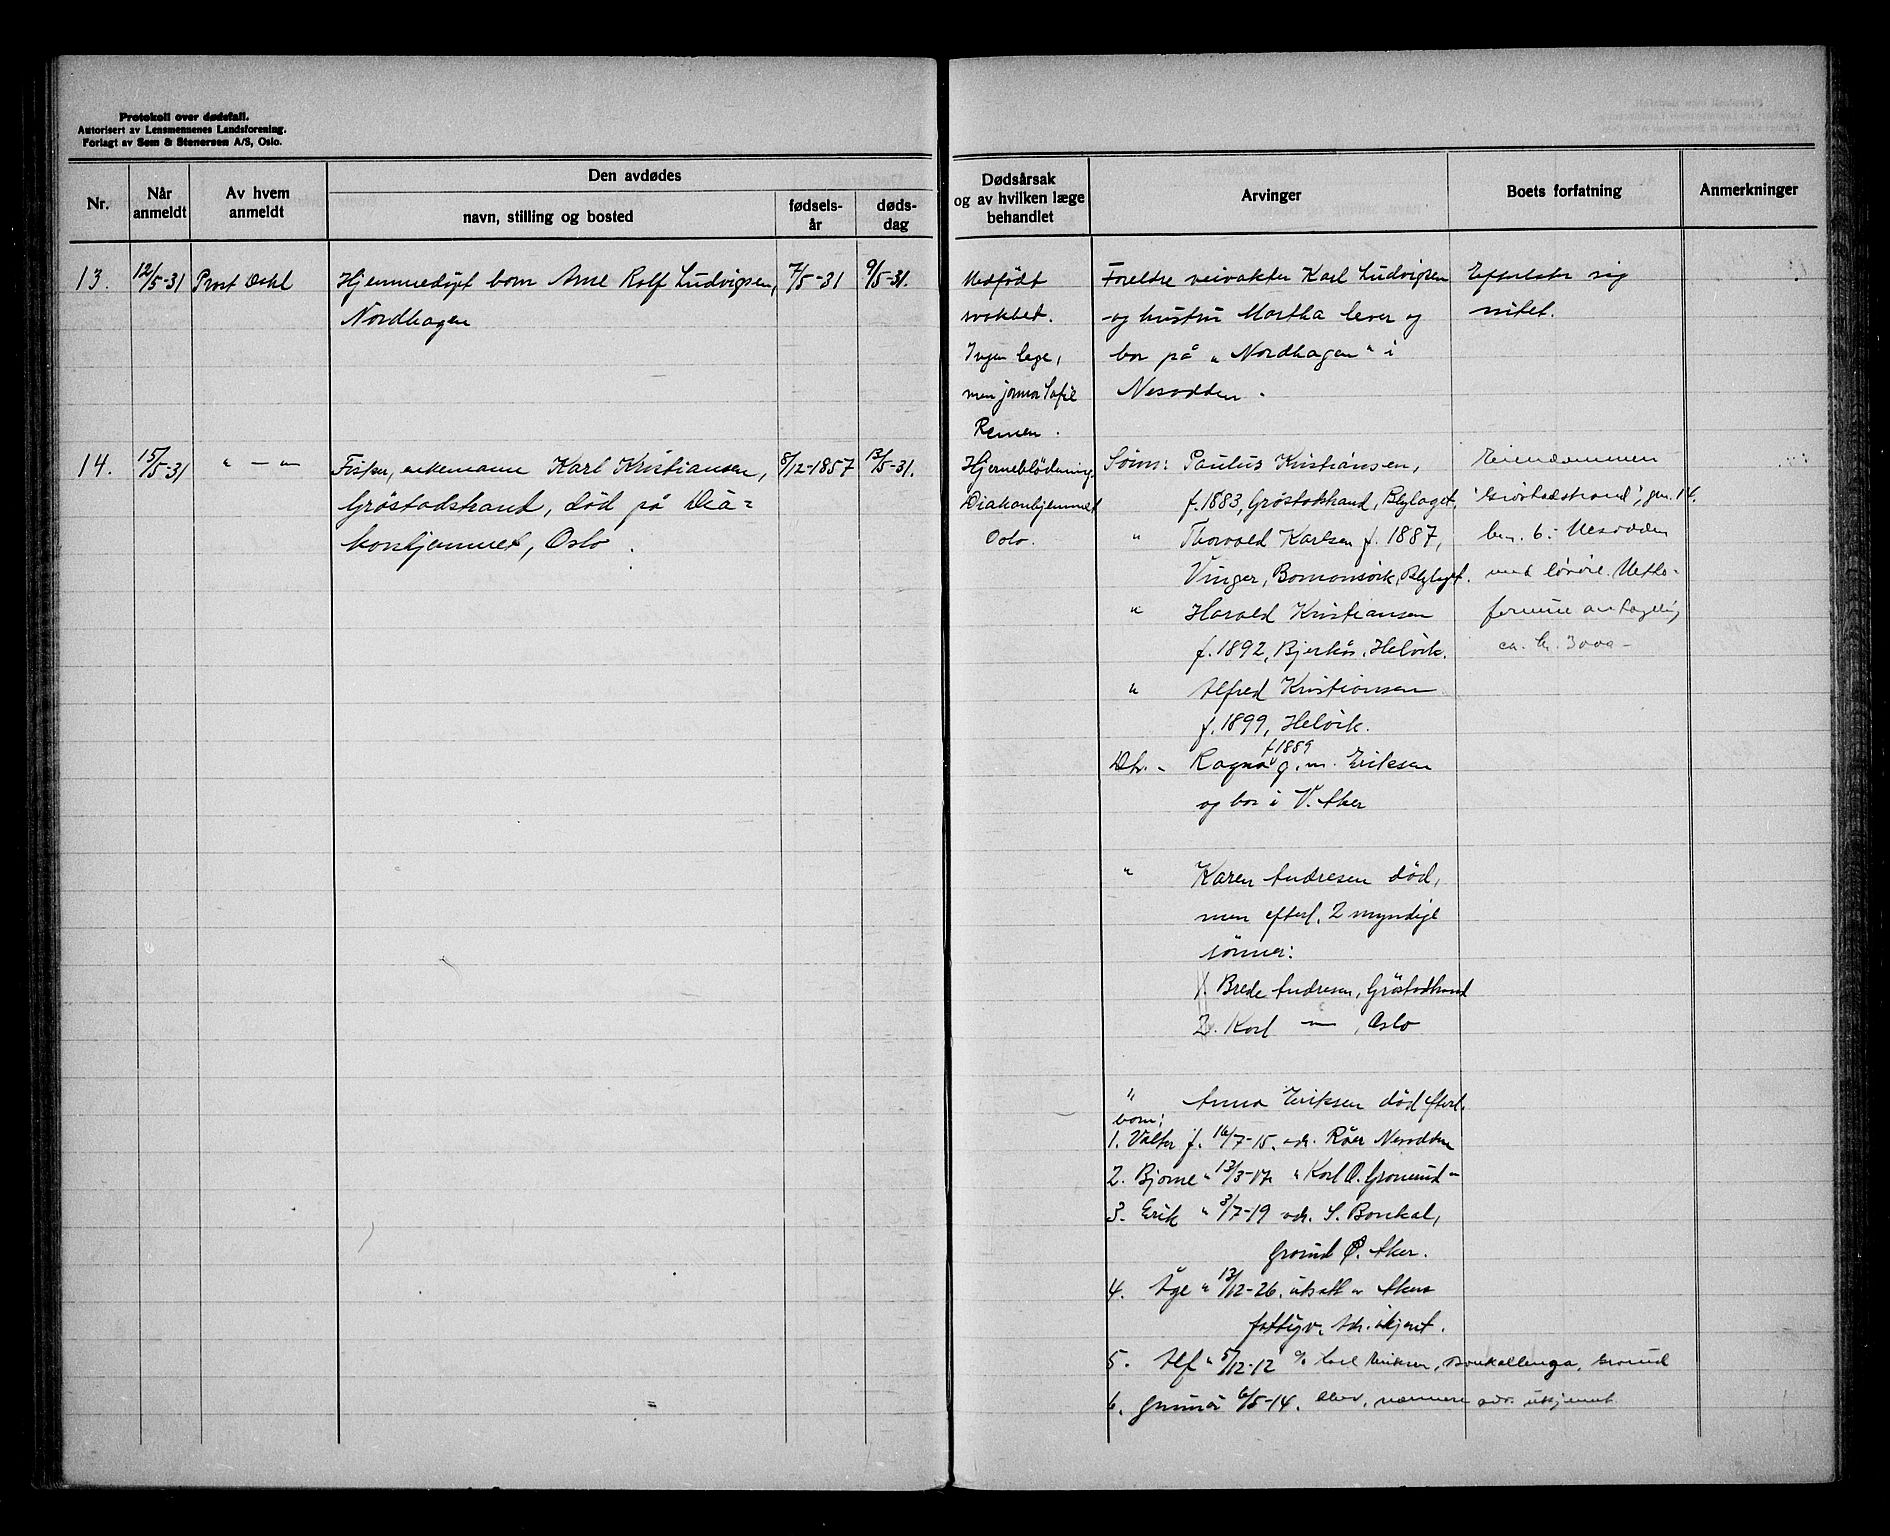 Protokoll over dødsfall.
Autorisert av Lensmennenes Landsforening.
Forlagt av Sem & Stenersen A/S, Oslo.
Nr.
Når anmeldt
Av hvem anmeldt
Den avdødes
navn, stilling og bosted
fødsels-år
døds-dag
Dødsårsak og av hvilken læge behandlet
Arvinger
Boets forfatning
Anmerkninger
13.
12/5-31
Prost Dahl
Hjemmedøpt barn Arne Rolf Ludvigsen,
Nordhagen
7/5-31
9/5-31.
Medfödt
svakhet.
Ingen lege,
men jormor Sofie
Remen.
Foreldre veivakter Karl Ludvigsen
og hustru Martha lever og
bor på "Nordhagen" i
Nesodden.
Efterlater sig
intet.
14.
15/5-31
" — "
Fisker, enkemann Karl Kristiansen,
Gröstadstrand, död på Dia=
konhjemmet, Oslo.
8/12-1857
13/5-31.
Hjerneblödning.
Diakonhjemmet
Oslo.
Sönn: Paulus Kristiansen,
f. 1883, Gröstadstrand, Blylaget.
" Thorvald Karlsen f. 1887,
Vinger, Bomansvik, Blylaget.
" Harald Kristiansen
f. 1892, Bjerkås, Helvik.
" Alfred Kristiansen
f. 1899, Helvik.
Dtr. - Ragna f. 1889 g. m. Eriksen
og bor i V. Aker
" Karen Andresen död,
men efterl. 2 myndige
sönner:
1. Brede Andresen, Gröstadstrand
2. Karl —"— , Oslo
" Anna Eriksen död efterl.
barn:
1. Valter f. 16/7-15. adr. Röer Nesodden
2. Bjarne " 13/3-17. " Karl O. Grorud -
3. Erik " 3/7-19 adr. S. Bonkal,
Grorud Ö. Aker.
4. Åge " 13/12-26. utsatt av Akers
fattigv. Adr. ukjent.
5. Alf " 5/12-12 c/o Carl Eriksen, Bonkallenga, Grorud
6. Gunnar 6/5-14. nærmere adr. ukjent.
Eiendommen
"Gröstadstrand", gnr. 14.
bnr. 6. Nesodden
med lösöre. Netto-
formue antagelig
ca. kr. 3000-